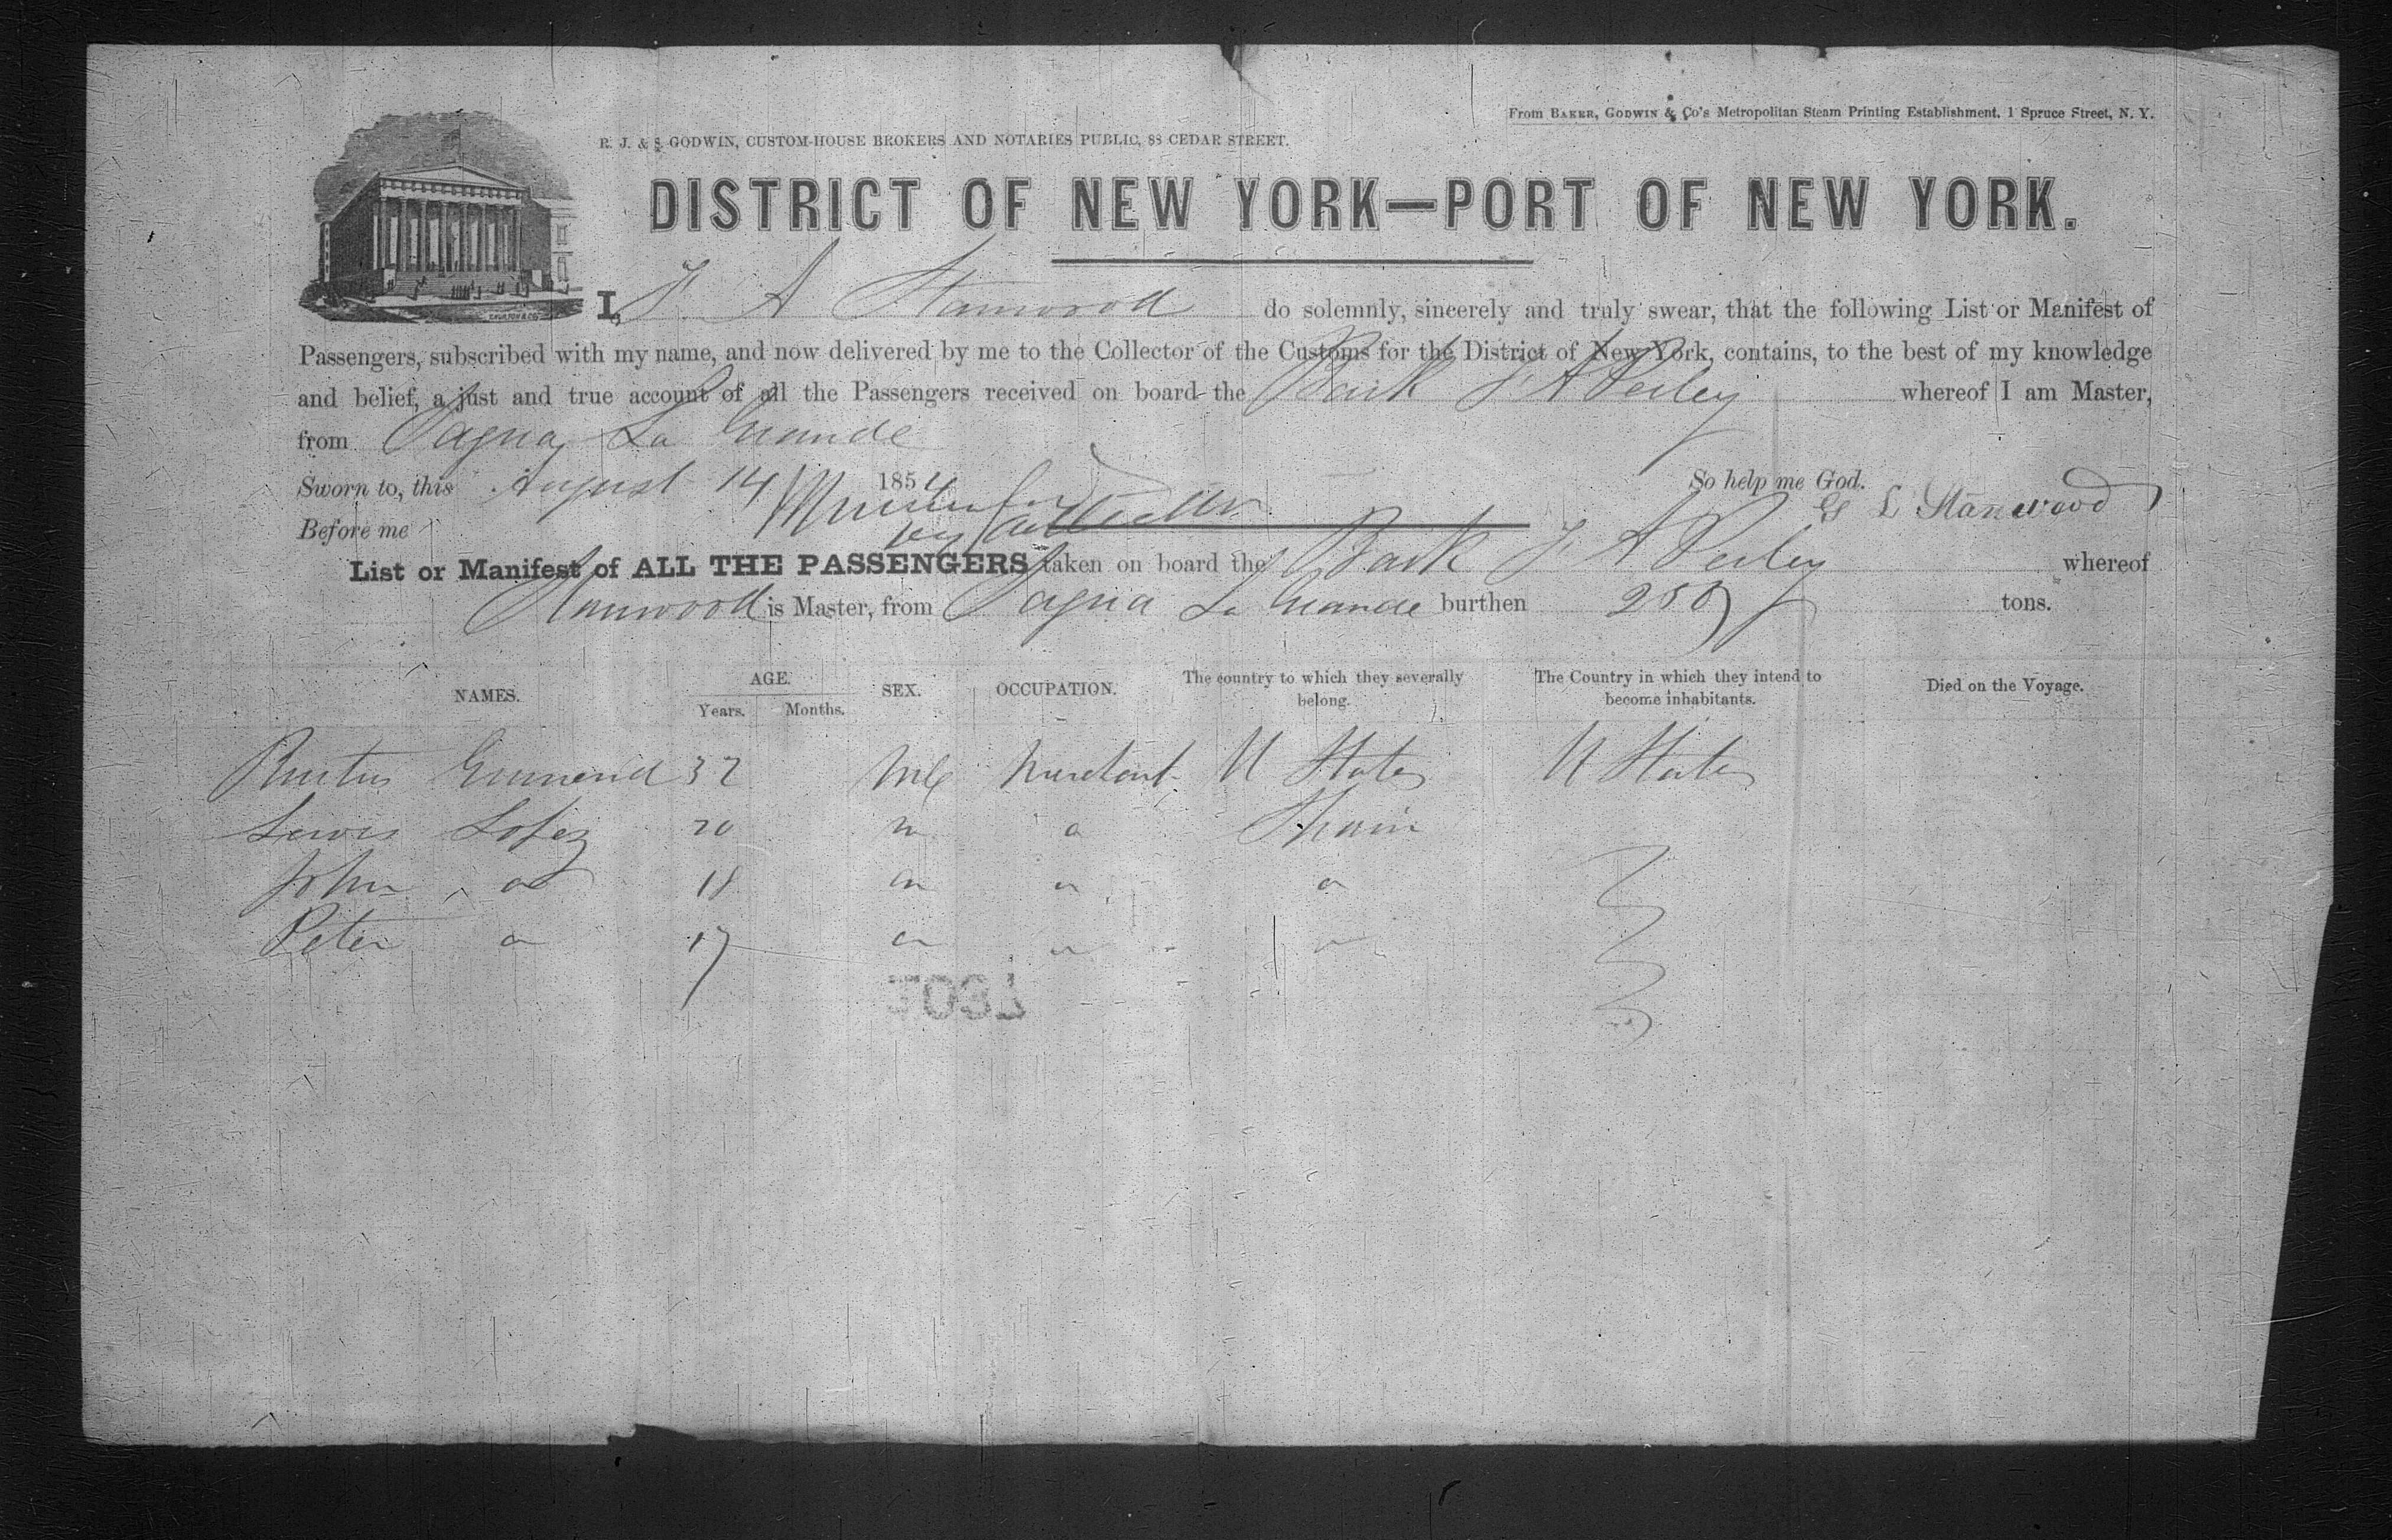 From BAKER, GODWIN & Co's Metropolitan Steam Printing Establishment, 1 Spruce Street, N. Y.
R. J. & S. GODWIN, CUSTOM-HOUSE BROKERS AND NOTARIES PUBLIC, 88 CEDAR STREET.
DISTRICT OF NEW YORK—PORT OF NEW YORK.
I, A Stanwood do solemnly, sincerely and truly swear, that the following List or Manifest of
Passengers, subscribed with my name, and now delivered by me to the Collector of the Customs for the District of New York, contains, to the best of my knowledge
and belief, a just and true account of all the Passengers received on board the Bark A Perley whereof I am Master,
from Sagua La Grande
Sworn to, this August 14 1854 So help me God.
L Stanwood
Before me
List or Manifest of ALL THE PASSENGERS taken on board the Bark A Perley whereof
Stanwood is Master, from Sagua La Grande burthen tons.
NAMES. AGE. SEX. OCCUPATION. The country to which they severally belong. The Country in which they intend to become inhabitants. Died on the Voyage.
Years. Months.
32 Mle U States U States
Lewis Lopez 20 " " Spain
John " 18 " " "
Peter " 17 " " "